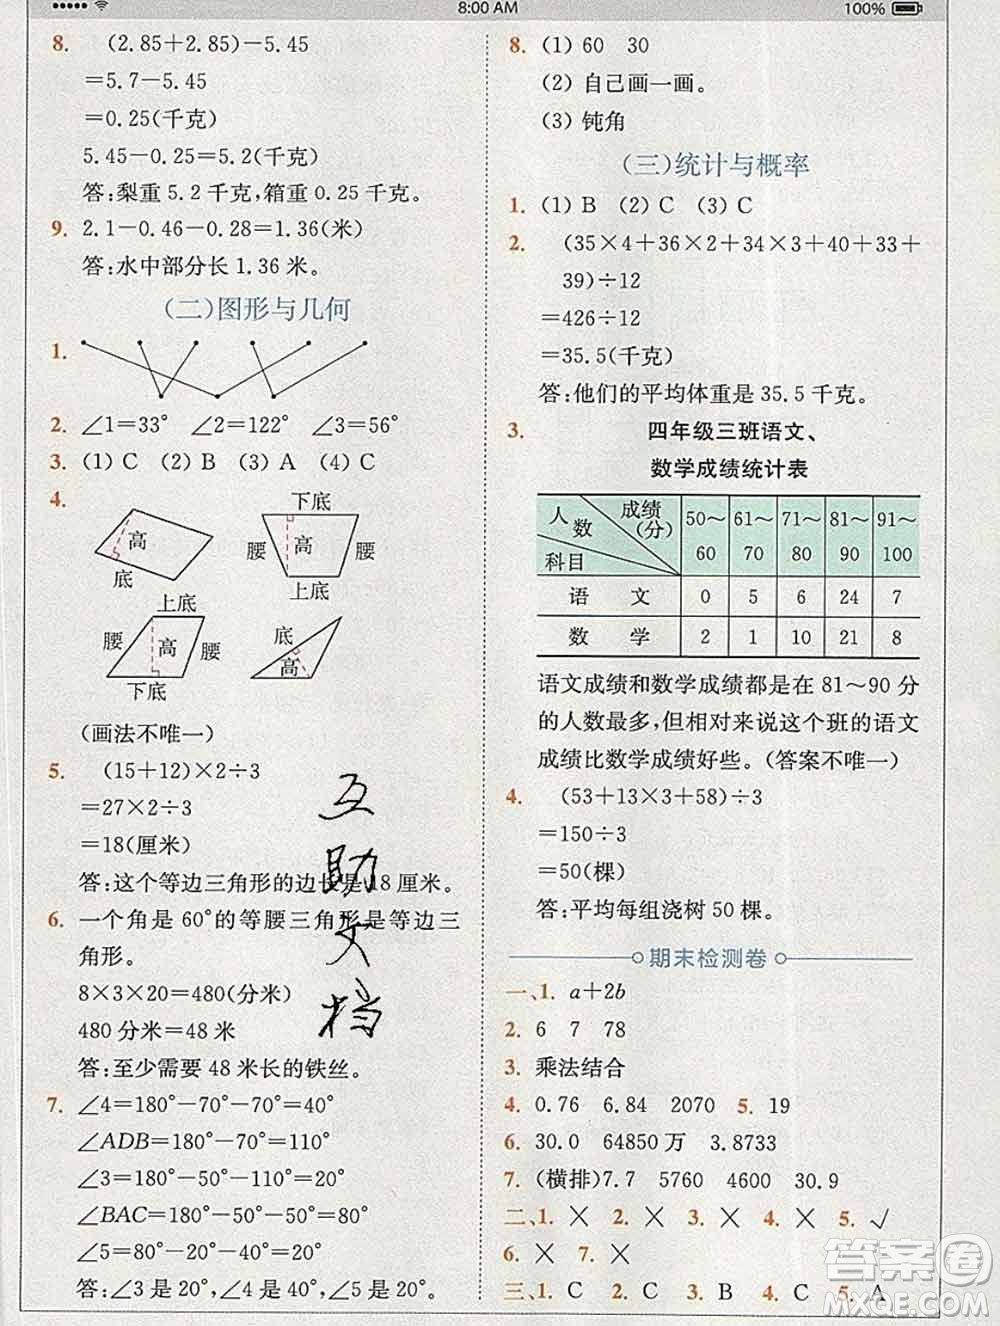 8:00 AM
100%
8. (2.85+2.85)-5.45
=5.7-5.45
=0.25(千克)
5.45-0.25=5.2(千克)
答:梨重5.2千克,箱重0.25千克。
9. 2.1-0.46-0.28=1.36(米)
答:水中部分长1.36米。
(二)图形与几何
1.
2. ∠1=33° ∠2=122° ∠3=56°
3. (1) C (2) B (3) A (4) C
4.
高
底
下底
腰
高
腰
上底
上底
腰
高
腰
下底
底
高
(画法不唯一)
5. (15+12)×2÷3
=27×2÷3
=18(厘米)
答:这个等边三角形的边长是18厘米。
6. 一个角是60°的等腰三角形是等边三
角形。
8×3×20=480(分米)
480分米=48米
答:至少需要48米长的铁丝。
7. ∠4=180°-70°-70°=40°
∠ADB=180°-70°=110°
∠3=180°-50°-110°=20°
∠BAC=180°-50°-50°=80°
∠5=80°-40°-20°=20°
答:∠3是20°,∠4是40°,∠5是20°。
互
助
文
档
8. (1) 60 30
(2) 自己画一画。
(3) 钝角
(三)统计与概率
1. (1) B (2) C (3) C
2. (35×4+36×2+34×3+40+33+
39)÷12
=426÷12
=35.5(千克)
答:他们的平均体重是35.5千克。
3. 四年级三班语文、
数学成绩统计表
人数 成绩(分) 科目 50~60 61~70 71~80 81~90 91~100
语文 0 5 6 24 7
数学 2 1 10 21 8
语文成绩和数学成绩都是在81~90分
的人数最多,但相对来说这个班的语文
成绩比数学成绩好些。(答案不唯一)
4. (53+13×3+58)÷3
=150÷3
=50(棵)
答:平均每组浇树50棵。
期末检测卷
一、1. a+2b
2. 6 7 78
3. 乘法结合
4. 0.76 6.84 2070 5. 19
6. 30.0 64850万 3.8733
7. (横排)7.7 5760 4600 30.9
二、1. × 2. × 3. × 4. × 5. √
6. × 7. ×
三、1. C 2. C 3. B 4. C 5. A
答案圈
MXQE.COM